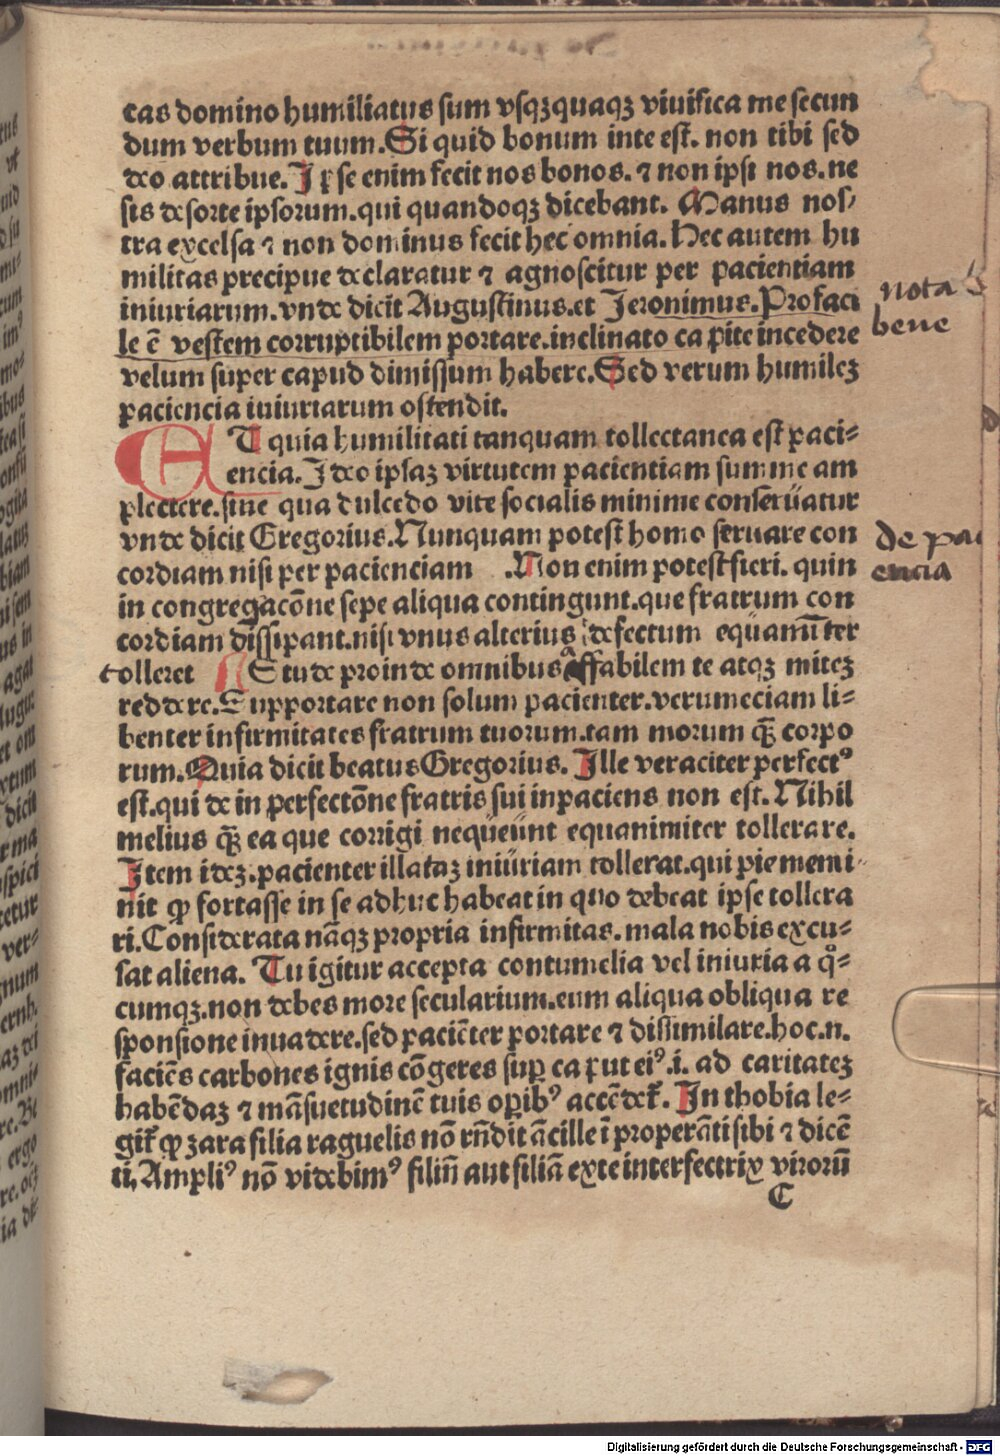 cas domino humiliatus sum vsqꝫquaqꝫ viuifica me secun
dum verbum tuum. Si quid bonum inte est. non tibi sed
deo attribue. Ipse enim fecit nos bonos. ⁊ non ipsi nos. ne
sis de sorte ipsorum. qui quandoqꝫ dicebant. Manus nos⸗
tra excelsa ⁊ non dominus fecit hec omnia. Hec autem hu
militas precipue declaratur ⁊ agnoscitur per pacientiam
iniuriarum. vnde dicit Augustinus. et Jeronimus. Profaci
le ē vestem corruptibilem portare. inclinato capite incedere
velum super capud dimissum habere. Sed verum humileꝫ
paciencia iuiuriarum ostendit.
ET quia humilitati tanquam collectanea est paci⸗
encia. Ideo ipsaꝫ virtutem pacientiam summe am
plectere. sine qua dulcedo vite socialis minime conseruatur
vnde dicit Gregorius. Nunquam potest homo seruare con
cordiam nisi per pacienciam. Non enim potest fieri. quin
in congregacōne sepe aliqua contingunt. que fratrum con
cordiam dissipant. nisi vnus alterius defectum equanīter
tolleret Stude proinde omnibus affabilem te atqꝫ miteꝫ
reddere. Supportare non solum pacienter. verumeciam li⸗
benter infirmitates fratrum tuorum. tam morum q̄ꝫ corpo
rum. Quia dicit beatus Gregorius. Ille veraciter perfectꝰ
est. qui de inperfectōne fratris sui inpaciens non est. Nihil
melius q̄ꝫ ea que corrigi nequeunt equanimiter tollerare.
Item ideꝫ. pacienter illataꝫ iniuriam tollerat. qui pie memi⸗
nit ꝙ fortasse in se adhuc habeat in quo debeat ipse tollera
ri. Considerata nāqꝫ propria infirmitas. mala nobis excu⸗
sat aliena. Tu igitur accepta contumelia vel iniuria a qͦ⸗
cumqꝫ. non debes more secularium. eum aliqua obliqua re
sponsione inuadere. sed paciēter portare ⁊ dissimilare. hoc. n.
faciēs carbones ignis cōgeres suꝑ caput eiꝰ. i. ad caritateꝫ
habēdaꝫ ⁊ māsuetudinē tuis oꝑibꝰ accēdet᷑. In thobia le⸗
git᷑ ꝙ zara filia raguelis nō rn̄dit ācille īproperāti sibi ⁊ dicē
ti. Ampliꝰ nō videbimꝰ filiū aut filiā exte interfectrix virorū
C
nota
bene
de paci
encia
Digitalisierung gefördert durch die Deutsche Forschungsgemeinschaft - DFG